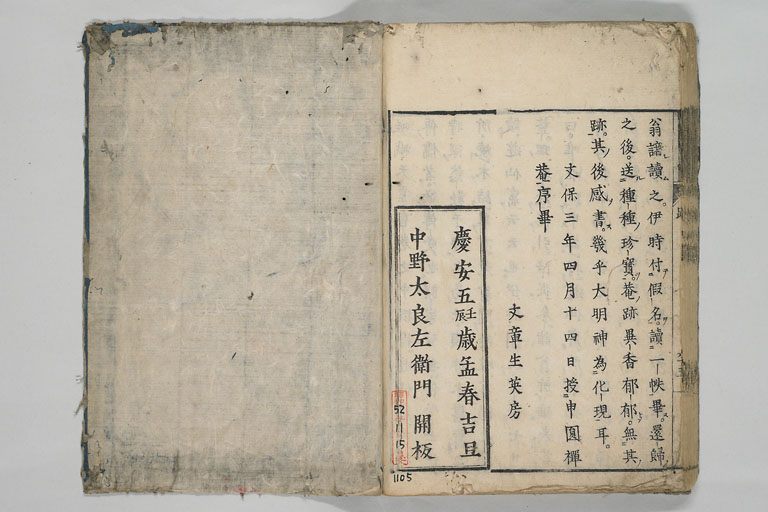 翁讀之伊時付假名讀一帙畢還歸
之後送種種珍寳菴跡異香郁郁無其
跡其後感書幾乎大明神為化現耳
文保三年四月十四日授申圓禪
菴序畢
文章生英房
慶安五壬辰歳孟春吉旦
中野太良左衛門 開板
52
11
15
1105